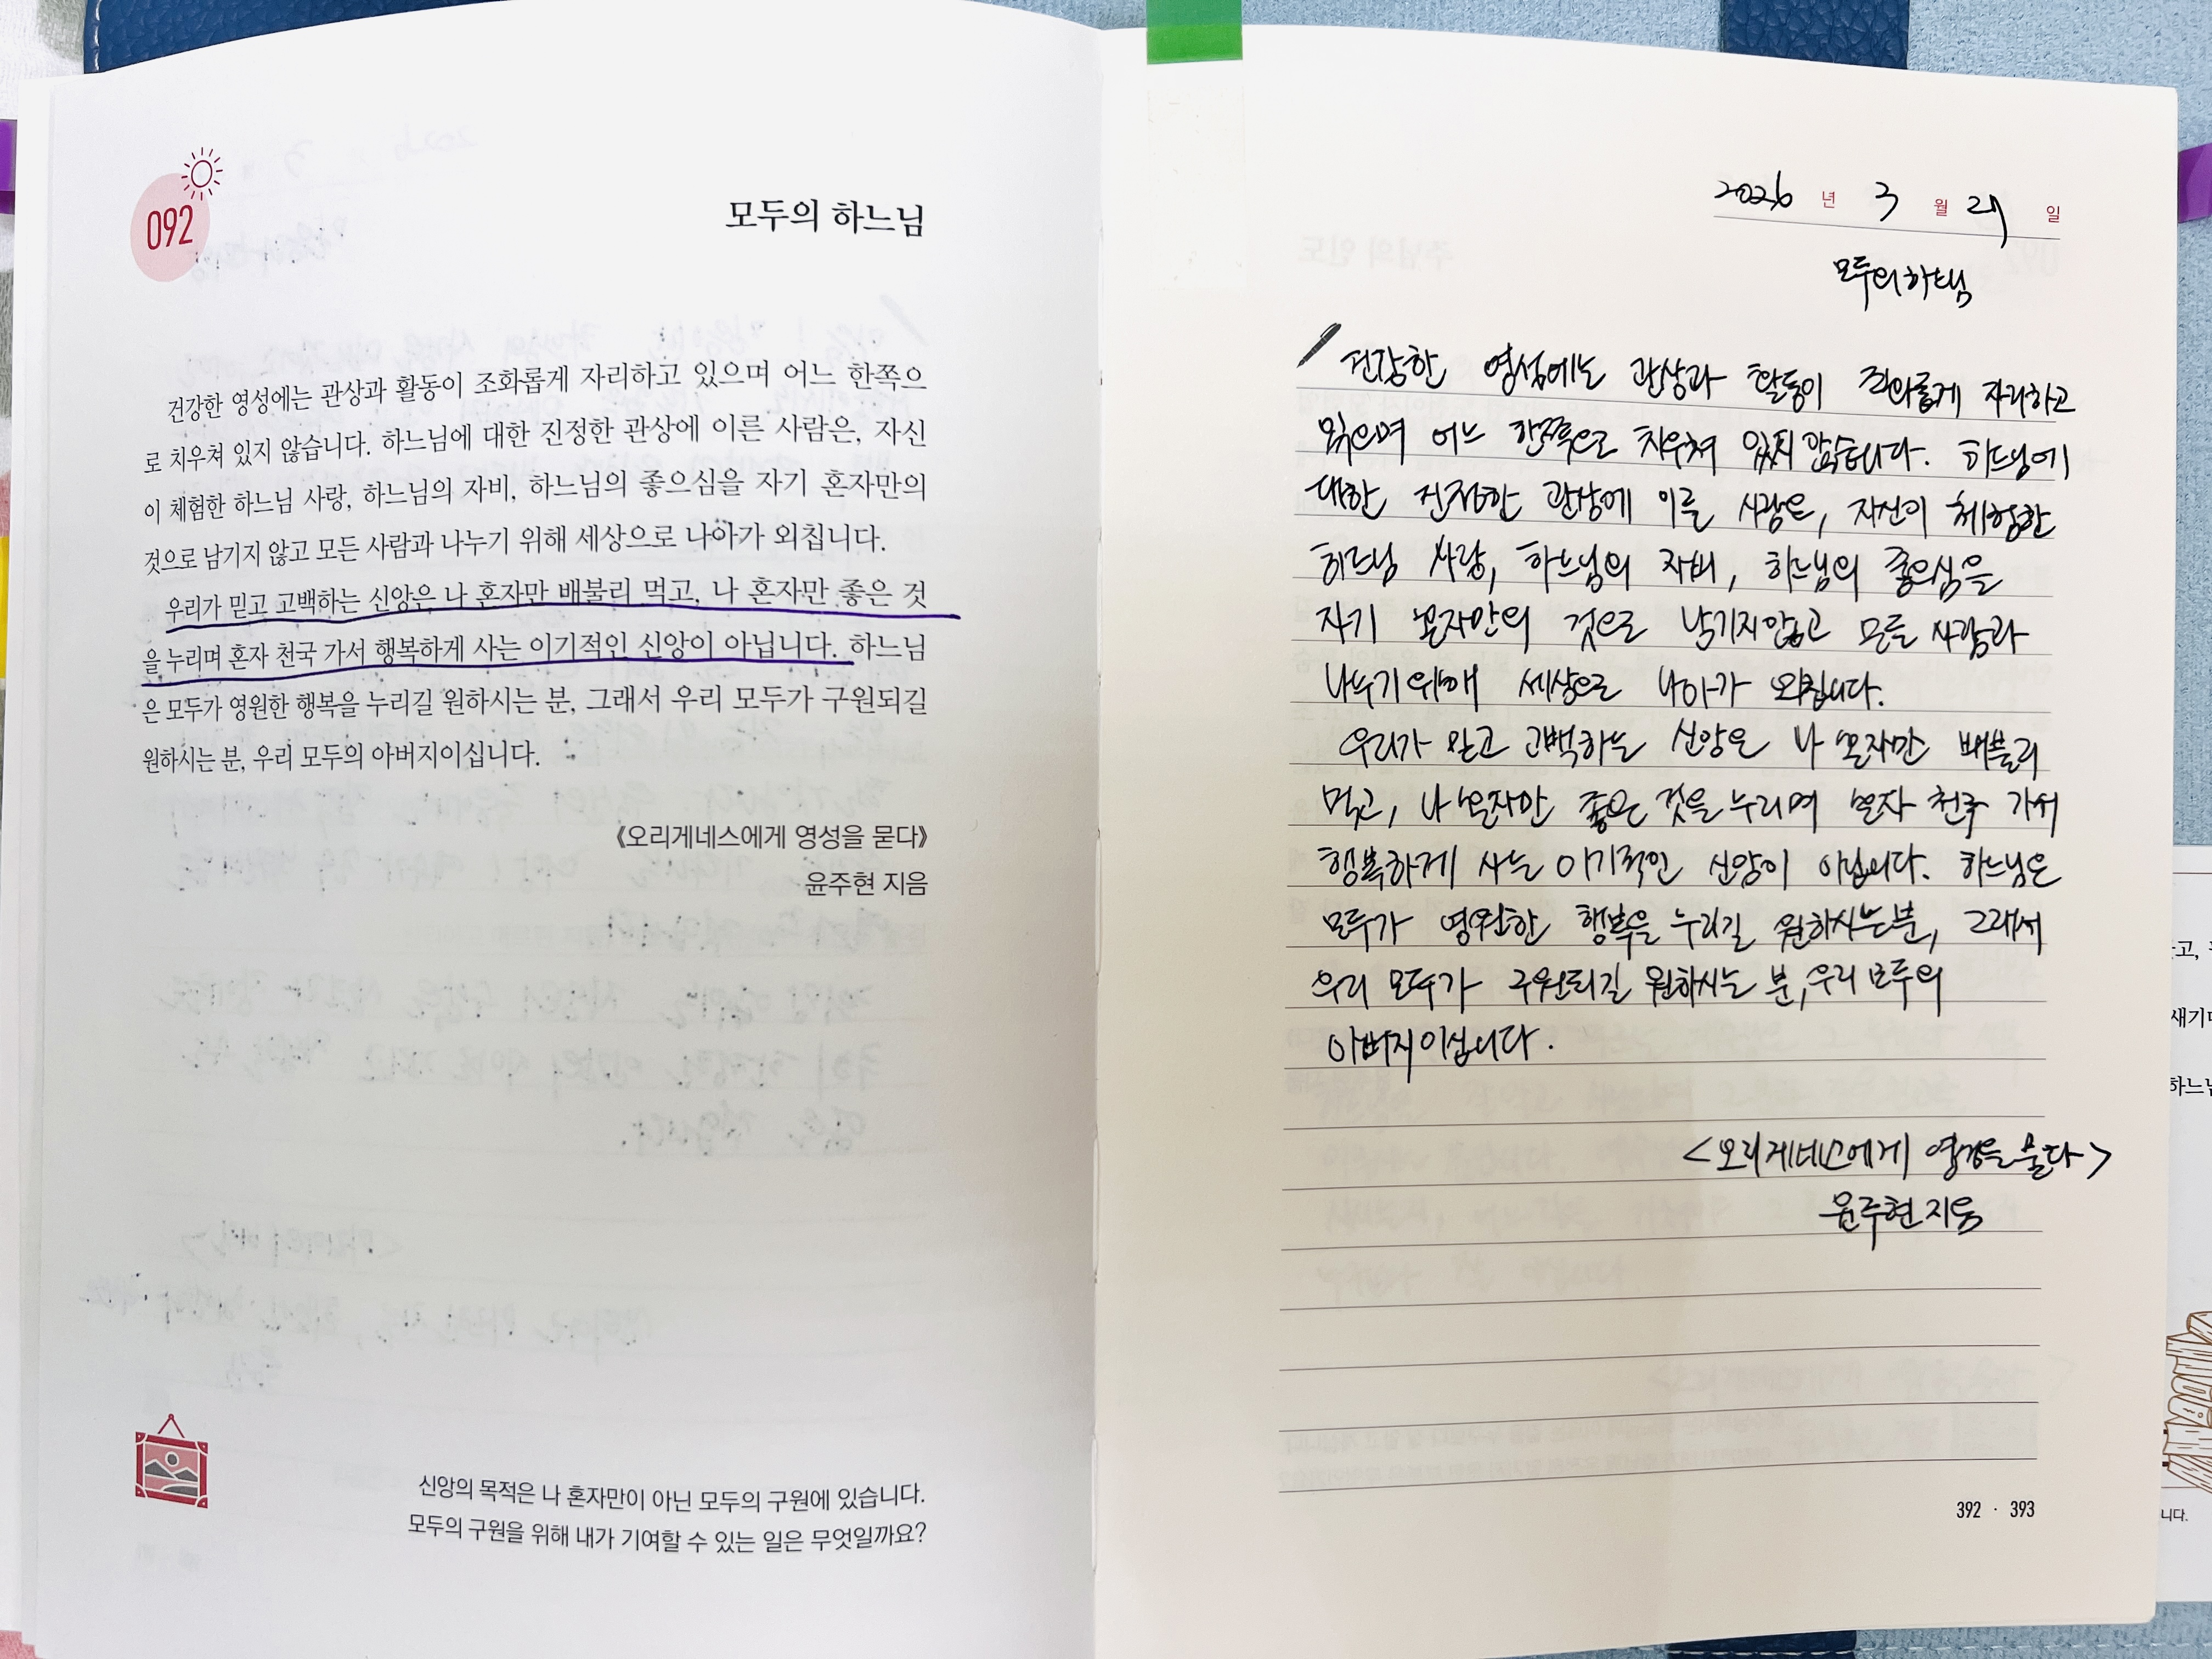 092
모두의 하느님
건강한 영성에는 관상과 활동이 조화롭게 자리하고 있으며 어느 한쪽으
로 치우쳐 있지 않습니다. 하느님에 대한 진정한 관상에 이른 사람은, 자신
이 체험한 하느님 사랑, 하느님의 자비, 하느님의 좋으심을 자기 혼자만의
것으로 남기지 않고 모든 사람과 나누기 위해 세상으로 나아가 외칩니다.
우리가 믿고 고백하는 신앙은 나 혼자만 배불리 먹고, 나 혼자만 좋은 것
을 누리며 혼자 천국 가서 행복하게 사는 이기적인 신앙이 아닙니다. 하느님
은 모두가 영원한 행복을 누리길 원하시는 분, 그래서 우리 모두가 구원되길
원하시는 분, 우리 모두의 아버지이십니다.
《오리게네스에게 영성을 묻다》
윤주현 지음
신앙의 목적은 나 혼자만이 아닌 모두의 구원에 있습니다.
모두의 구원을 위해 내가 기여할 수 있는 일은 무엇일까요?
2026 년 3 월 21 일
모두의 하느님
건강한 영성에는 관상과 활동이 조화롭게 자리하고
있으며 어느 한쪽으로 치우쳐 있지 않습니다. 하느님에
대한 진정한 관상에 이른 사람은, 자신이 체험한
하느님 사랑, 하느님의 자비, 하느님의 좋으심을
자기 혼자만의 것으로 남기지 않고 모든 사람과
나누기 위해 세상으로 나아가 외칩니다.
우리가 믿고 고백하는 신앙은 나 혼자만 배불리
먹고, 나 혼자만 좋은 것을 누리며 혼자 천국 가서
행복하게 사는 이기적인 신앙이 아닙니다. 하느님은
모두가 영원한 행복을 누리길 원하시는 분, 그래서
우리 모두가 구원되길 원하시는 분, 우리 모두의
아버지이십니다.
<오리게네스에게 영성을 묻다>
윤주현 지음
392 · 393
새기
하느님
니다.